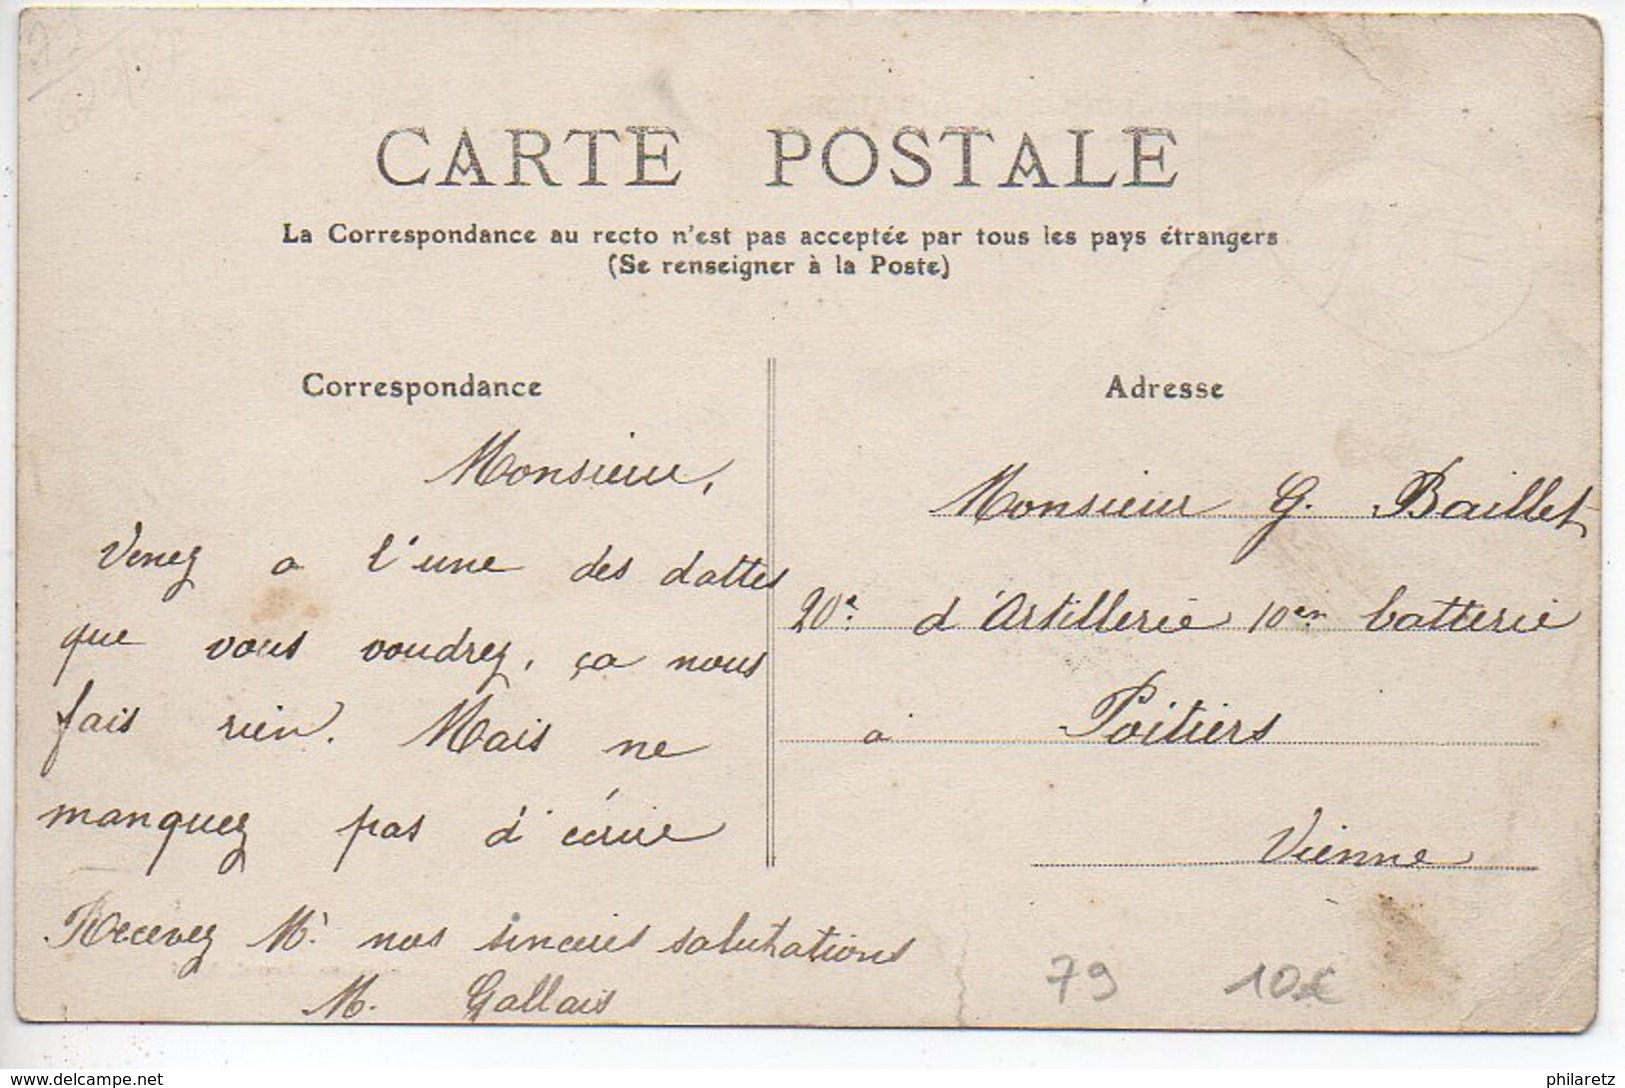 CARTE POSTALE
La Correspondance au recto n'est pas acceptée par tous les pays étrangers
(Se renseigner à la Poste)
Correspondance
Monsieur,
Venez a l'une des dattes
que vous voudrez, ça nous
fais rien. Mais ne
manquez pas d'écrire
Recevez Mr nos sinceres salutations
M. Gallais
Adresse
Monsieur G. Baillet
20e d'Artillerie 10em batterie
à Poitiers
Vienne
79 10€
www.delcampe.net
philaretz